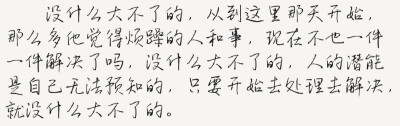 没什么大不了的，从到这里那天开始，
那么多他觉得烦躁的人和事，现在不也一件
一件解决了吗，没什么大不了的，人的潜能
是自己无法预知的，只要开始去处理去解决，
就没什么大不了的。